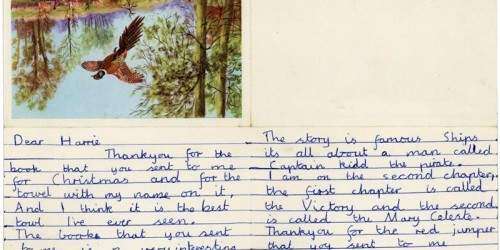 Dear Harrie
Thankyou for the
book that you sent to me
for Christmas and for the
towel with my name on it,
And I think it is the best
towl I've ever seen.
The books that you sent
to me is very interesting
The story is famous Ships
its all about a man called
Captain Kidd the pirate.
I am on the second chapter,
the first chapter is called
the Victory and the second
is called the Mary Celeste.
Thankyou for the red jumper
that you sent to me